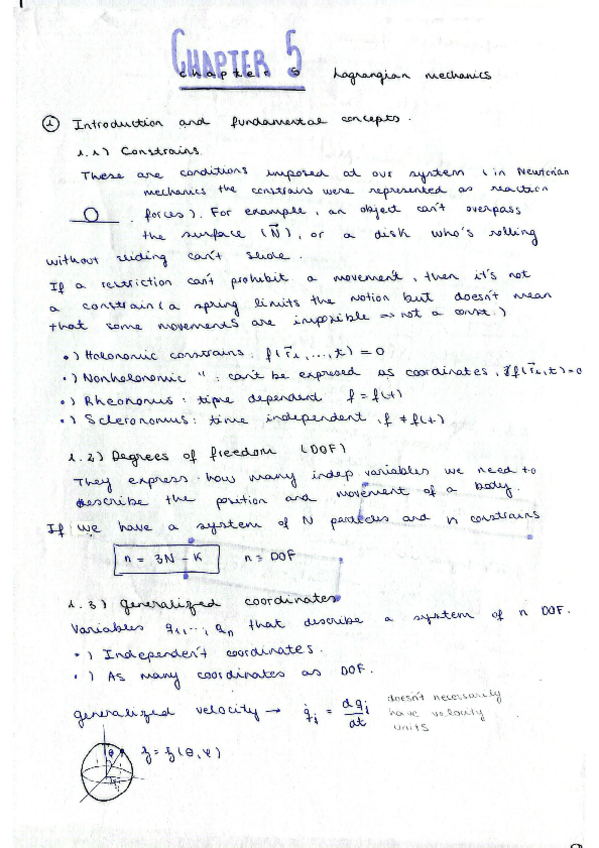 CHAPTER 5
chapter 5 Lagrangian mechanics
① Introduction and fundamental concepts.
1.1) Constrains.
These are conditions imposed at our system (in Newtonian
mechanics the constrains were represented as reaction
forces). For example, an object can't overpass
the surface (N⃗), or a disk who's rolling
without sliding can't slide.
If a restriction can't prohibit a movement, then it's not
a constrain (a spring limits the motion but doesn't mean
that some movements are impossible ⇒ not a const.)
•) Holonomic constrains: f(r⃗i,...,t) = 0
•) Nonholonomic " : can't be expresed as coordinates, ∄f(r⃗i,t)=0
•) Rheonomus: time dependent f = f(t)
•) Scleronomus: time independent, f ≠ f(t)
1.2) Degrees of freedom (DOF)
They express how many indep. variables we need to
describe the position and movement of a body.
If we have a system of N particles and K constrains
n = 3N - K n = DOF
1.3) Generalized coordinates
Variables q1,..., qn that describe a system of n DOF.
•) Independent coordinates.
•) As many coordinates as DOF.
generalized velocity → q̇i = dqi/dt doesn't necessarily
have velocity
units
θ φ z = z(θ, φ)